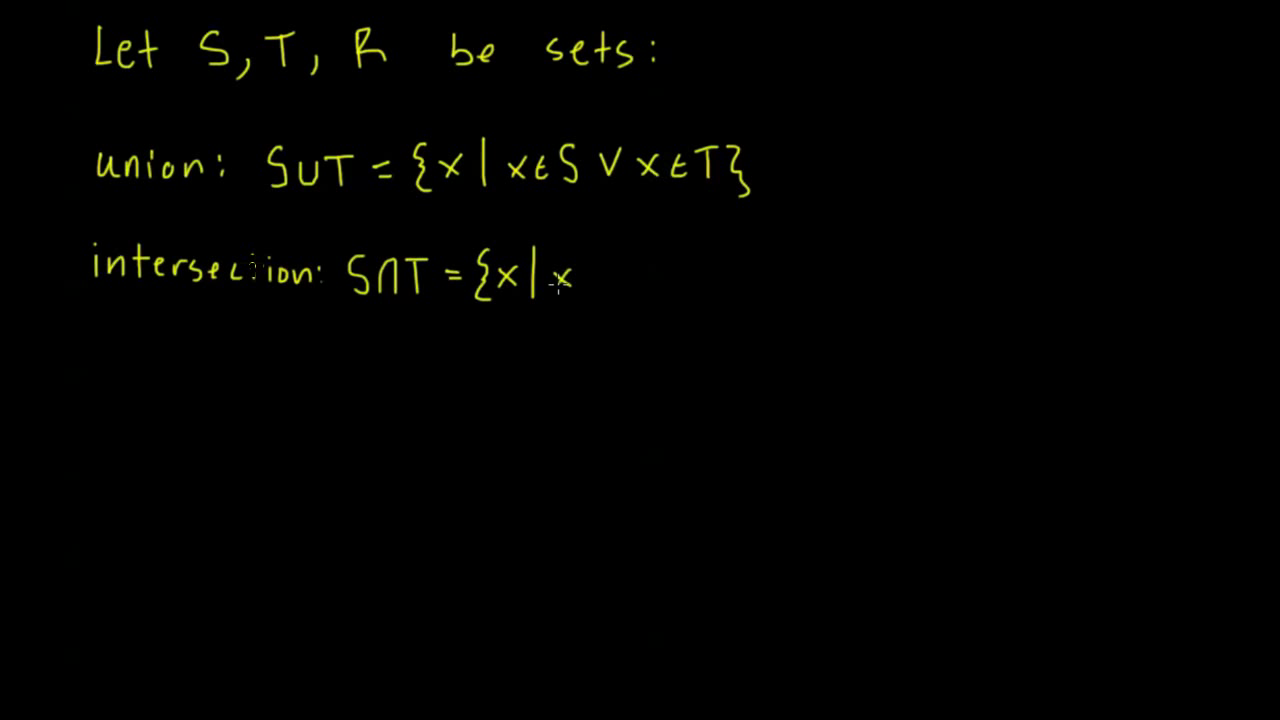 Let S, T, R be sets:
union: S∪T = {x | x∈S ∨ x∈T}
intersection: S∩T = {x | x